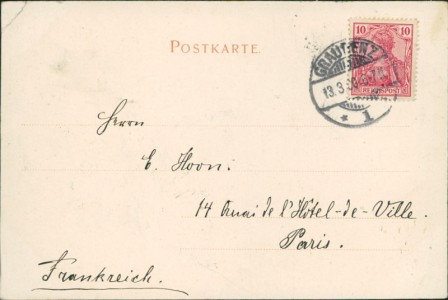 POSTKARTE.
10 10
REICHSPOST
GRAUDENZ
13.3.
* 1
Herrn
E. Hoon.
14 Quai de l'Hôtel-de-Ville.
Paris.
Frankreich.